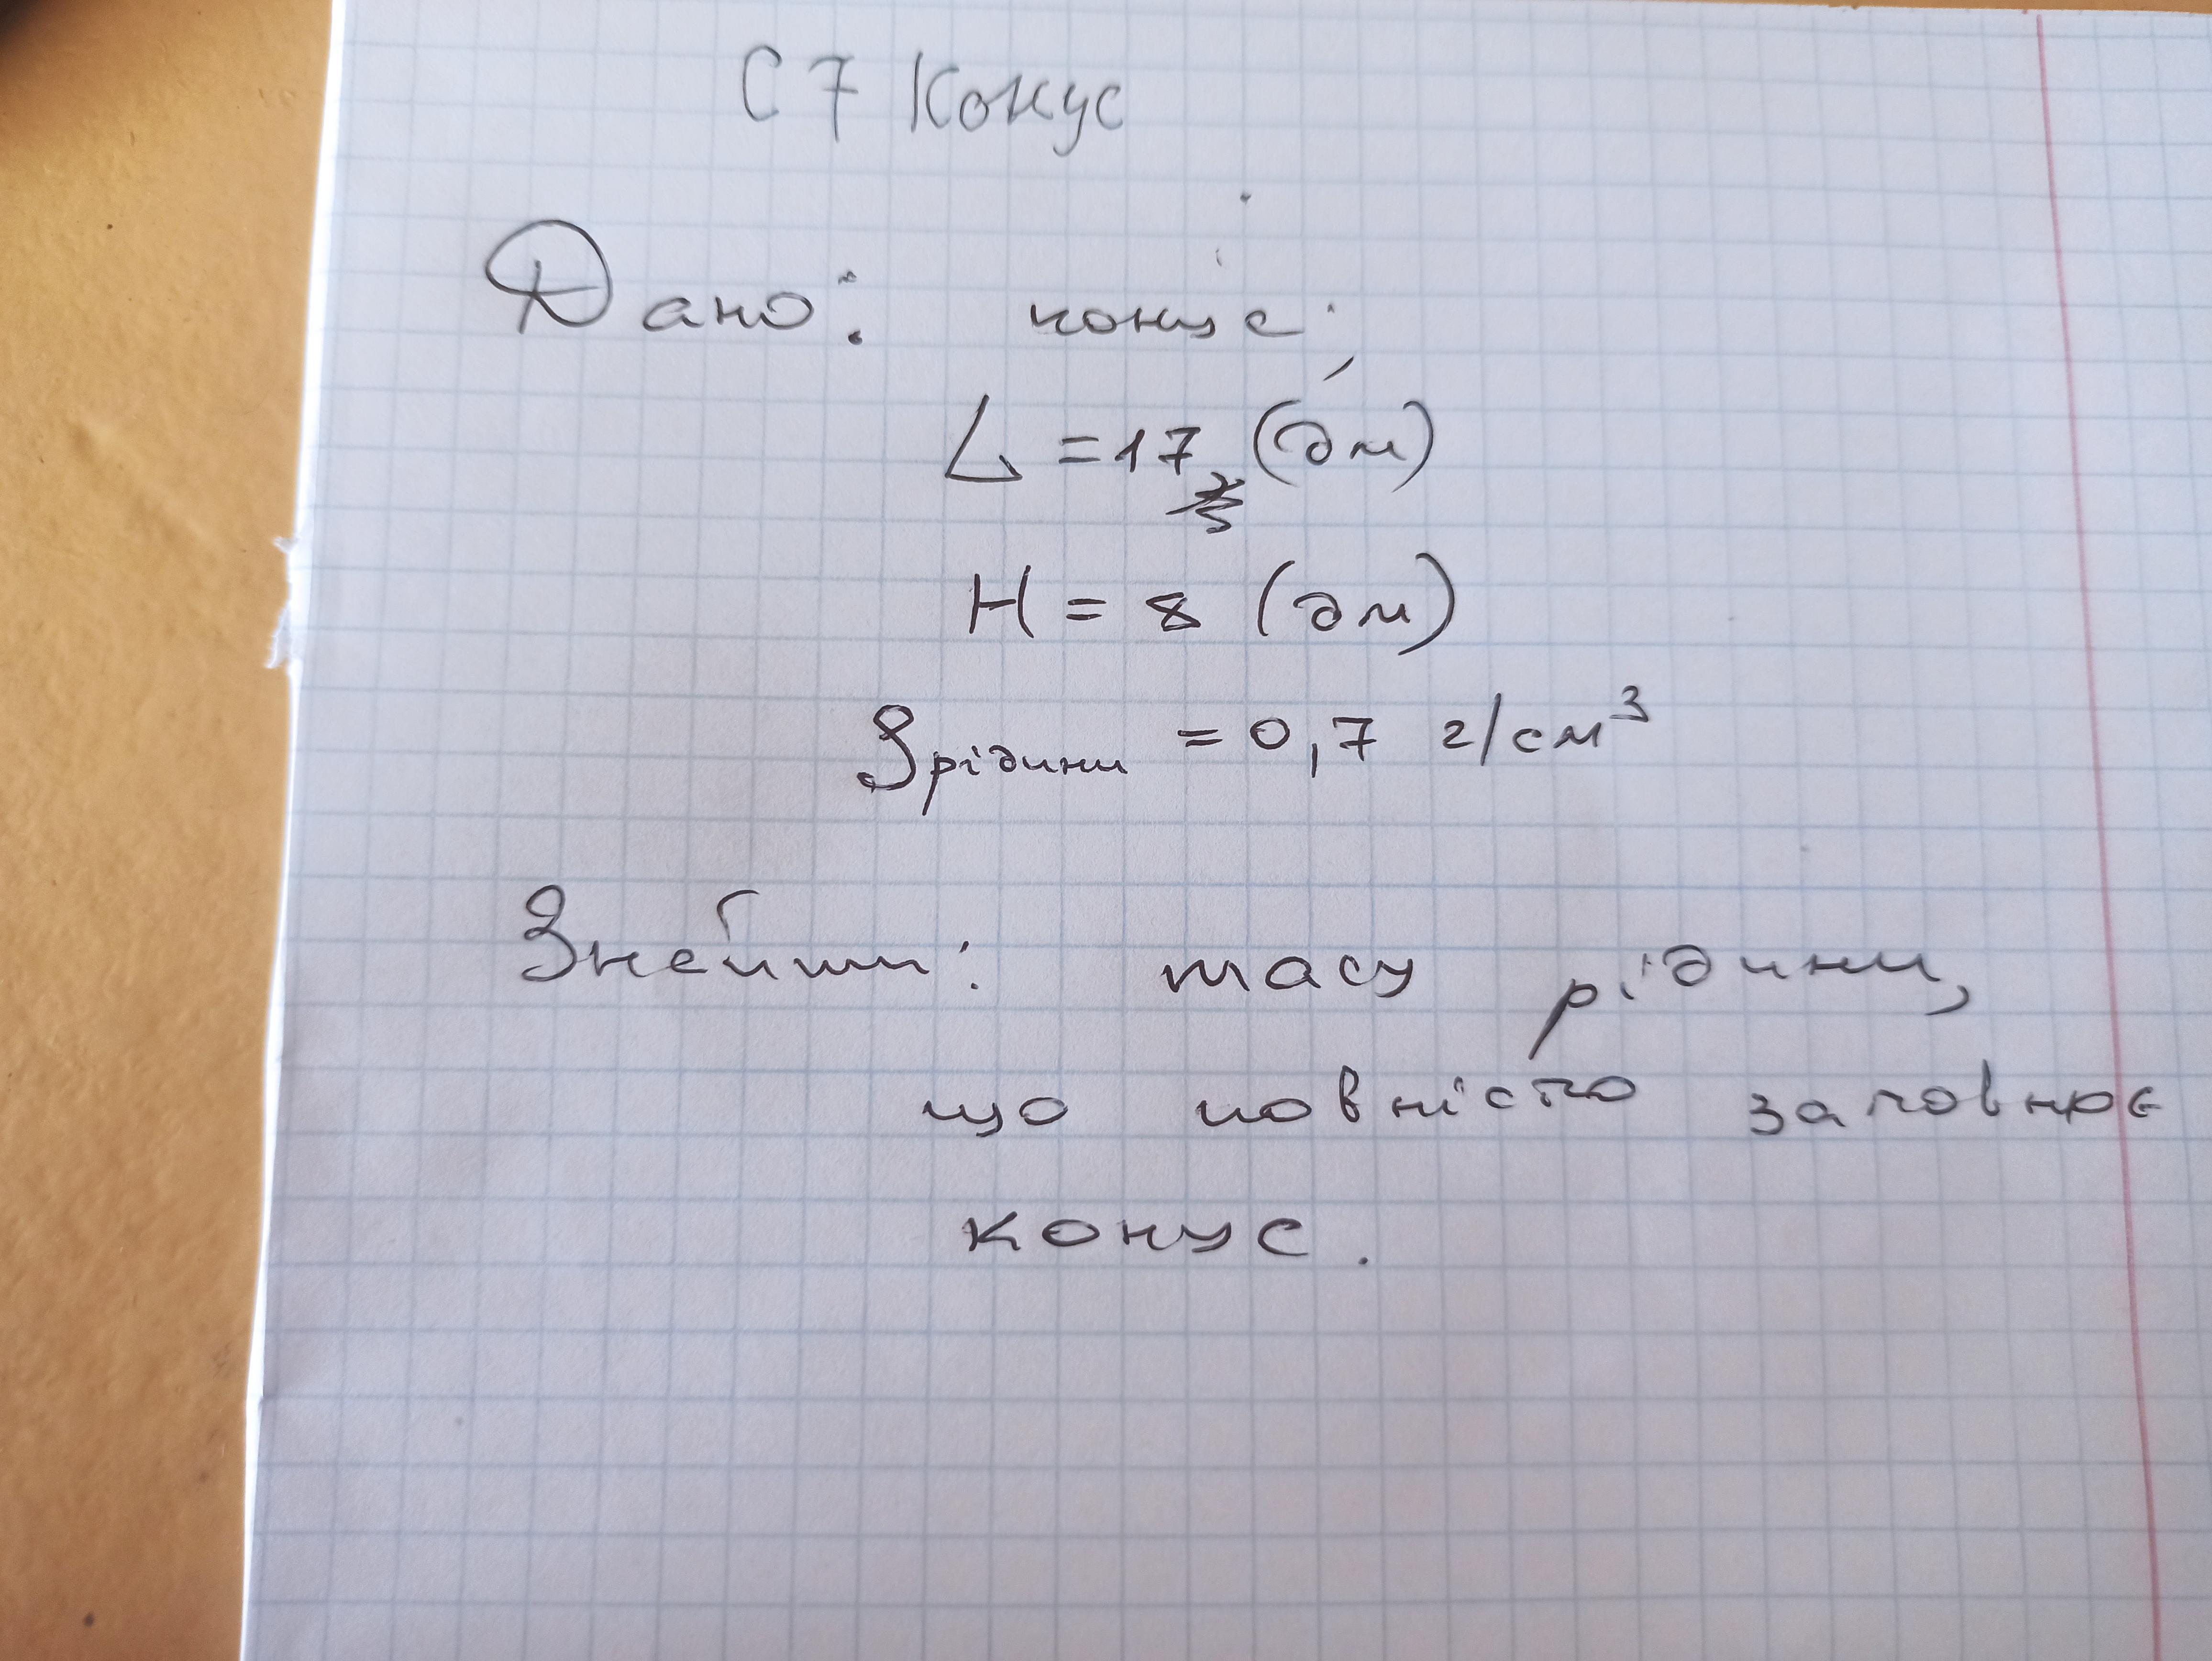 С 7 Конус
Дано: конус;
L = 17 (дм)
H = 8 (дм)
ρ рідини = 0,7 г/см³
Знайти: масу рідини,
що повністю заповнює
конус.